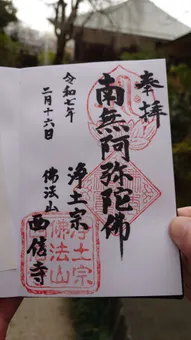 奉拝
南無阿弥陀佛
令和七年
二月十六日
浄土宗
佛法山
西信寺
浄土宗
佛法山